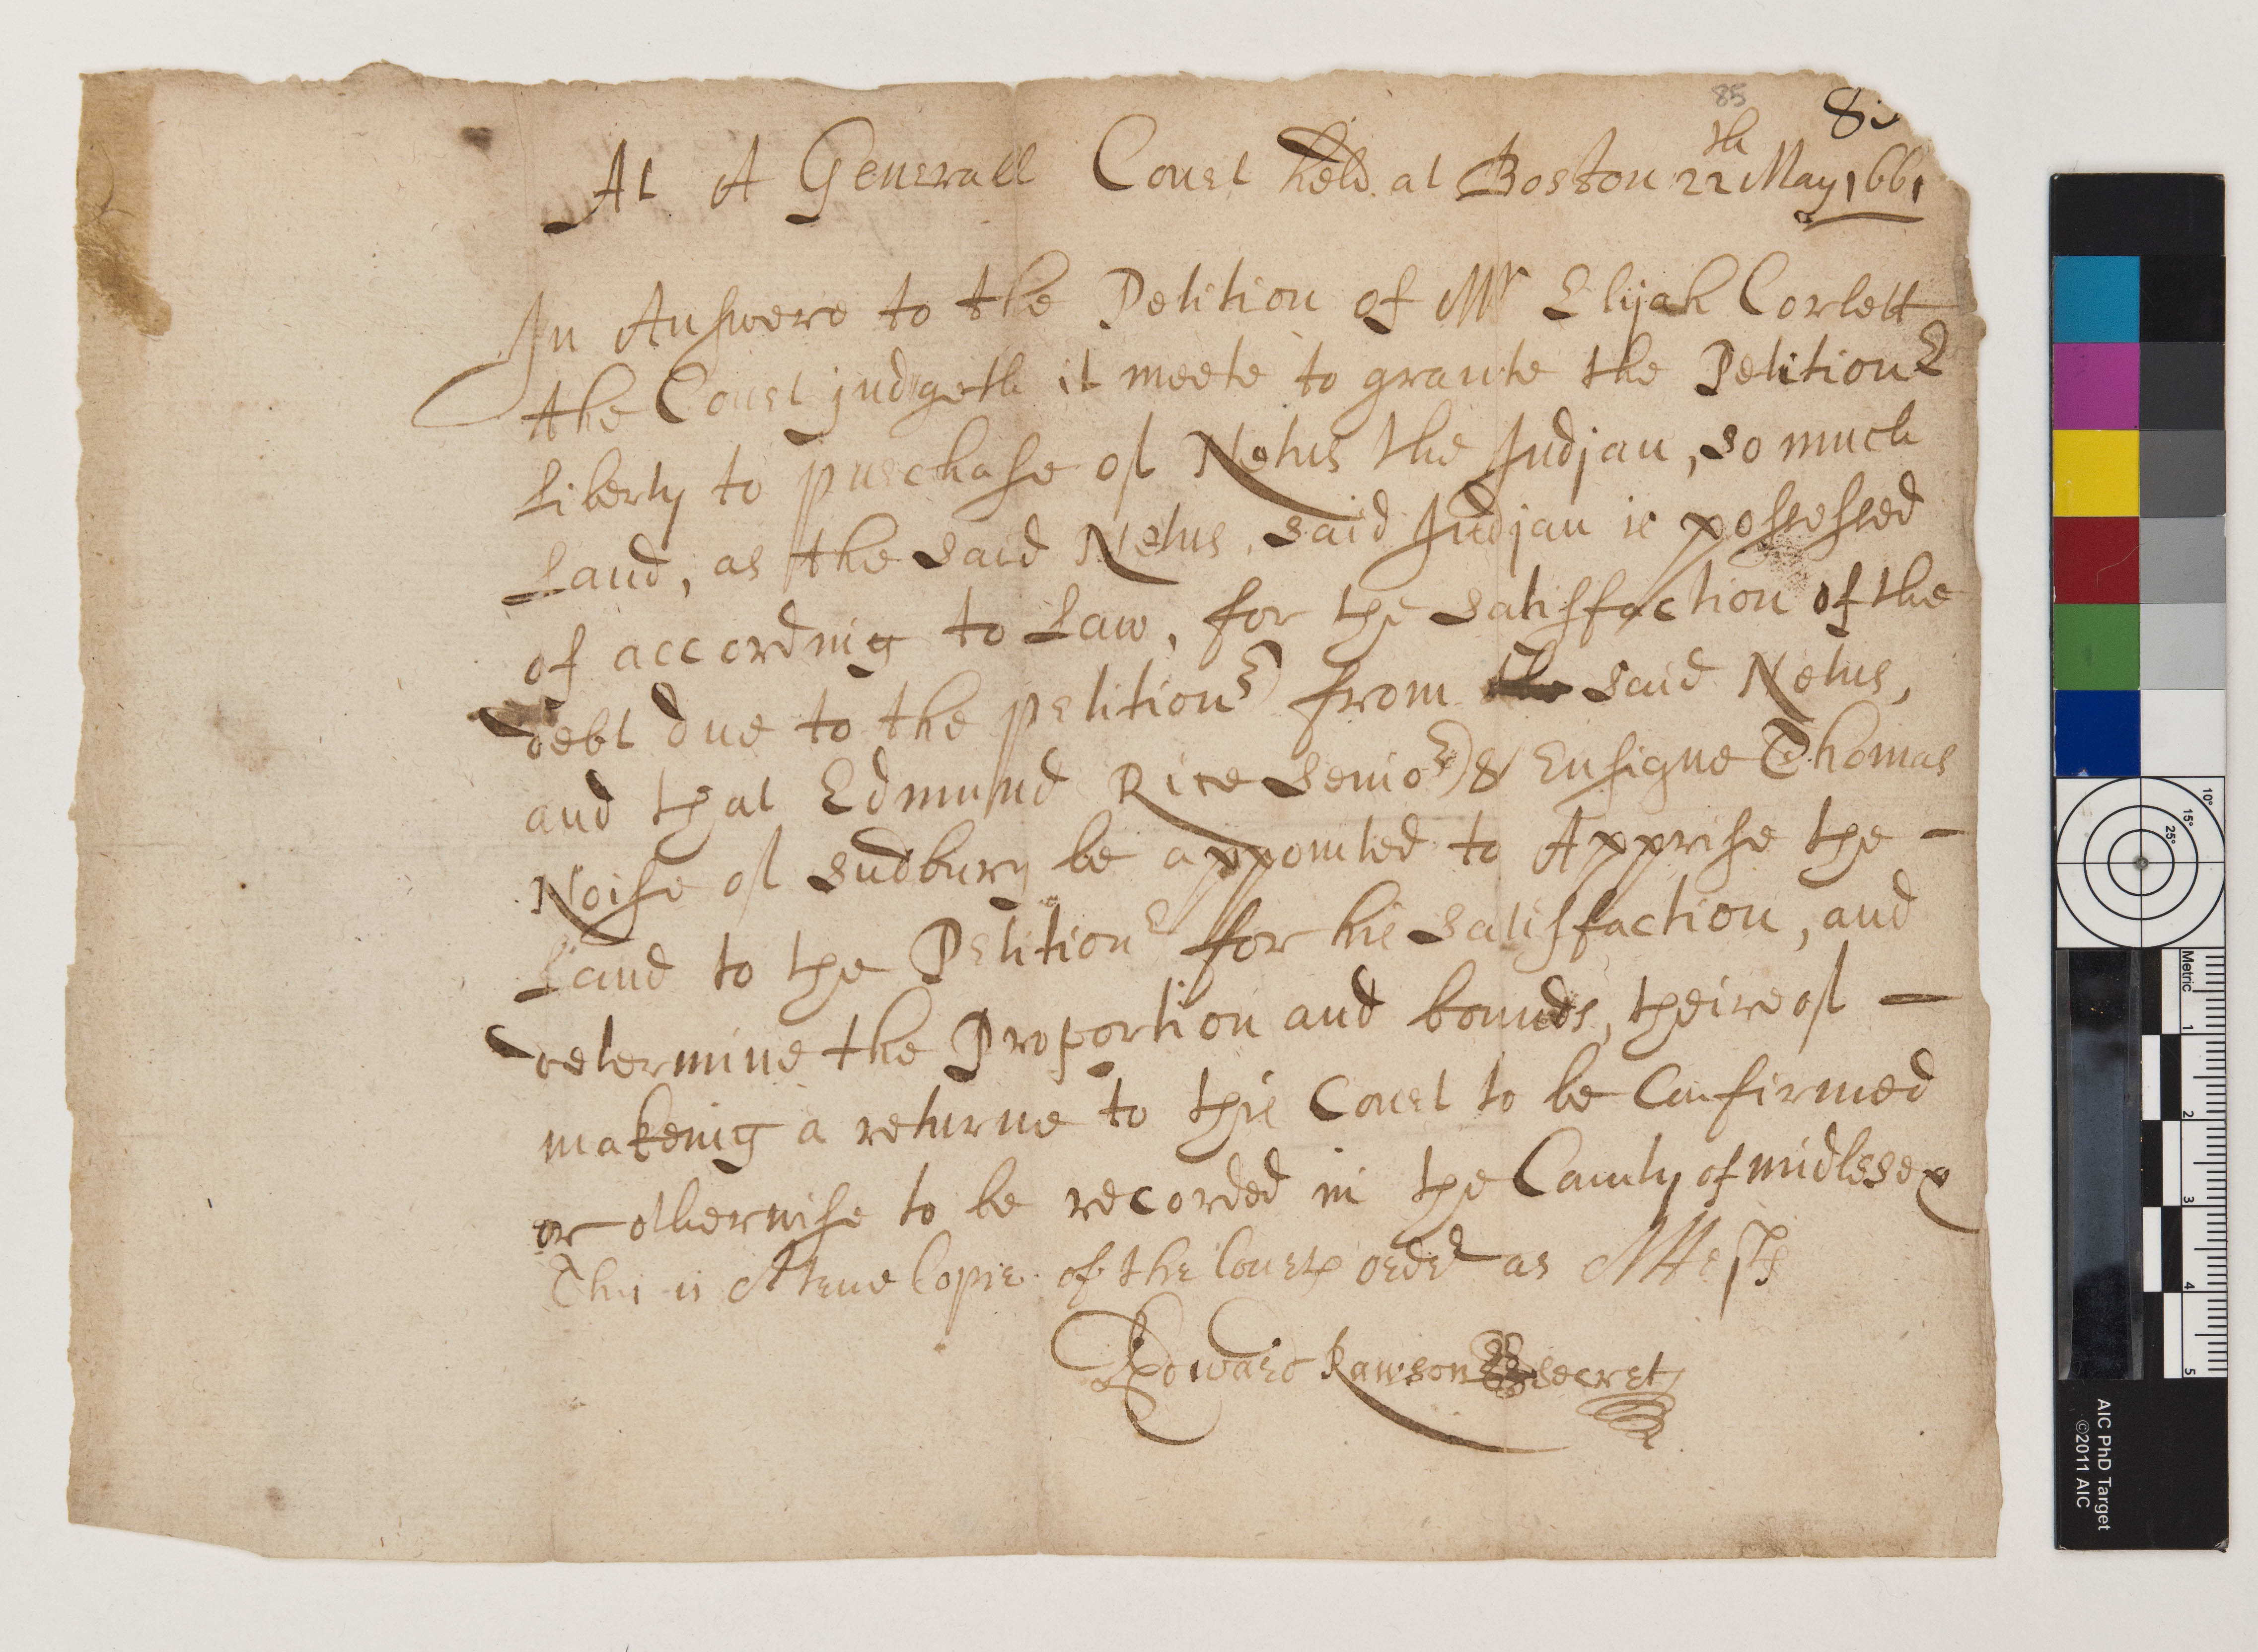 85
8
At A Generall Court held at Boston 22th May 1661
In Answere to the Petition of Mr Elijah Corlett
the Court judgeth it meete to graunte the Petitionr
Liberty to purchase of Netus the Indjan, so much
Land, as the said Netus, said Indjan is possessed
of accordnig to Law, for the satisffaction of the
debt due to the petitionr from the said Netus,
and that Edmund Rice senior & Ensigne Thomas
Noise of sudbury be appointed to Apprise the —
Land to the Petitionr for his satisffaction, and
determine the Proportion and bounds, theireof —
makenig a returne to this Court to be Confirmed
or otherwise to be recorded in the County of midlesex
This is A true Copie of the Courts order as Attests
Edward Rawson secret
10°
15°
25°
Metric
1
2
3
4
5
AIC PhD Target
©2011 AIC